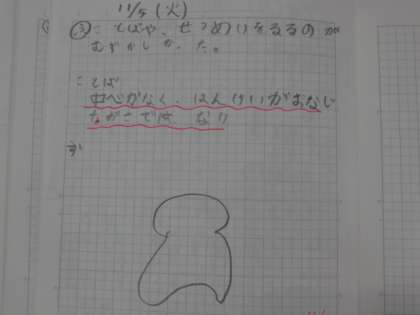 11/5 (火)
③ ことばや、せつめいをするのが
むずかしかった。
ことば
中心がなく、はんけいがおなじ
ながさではない